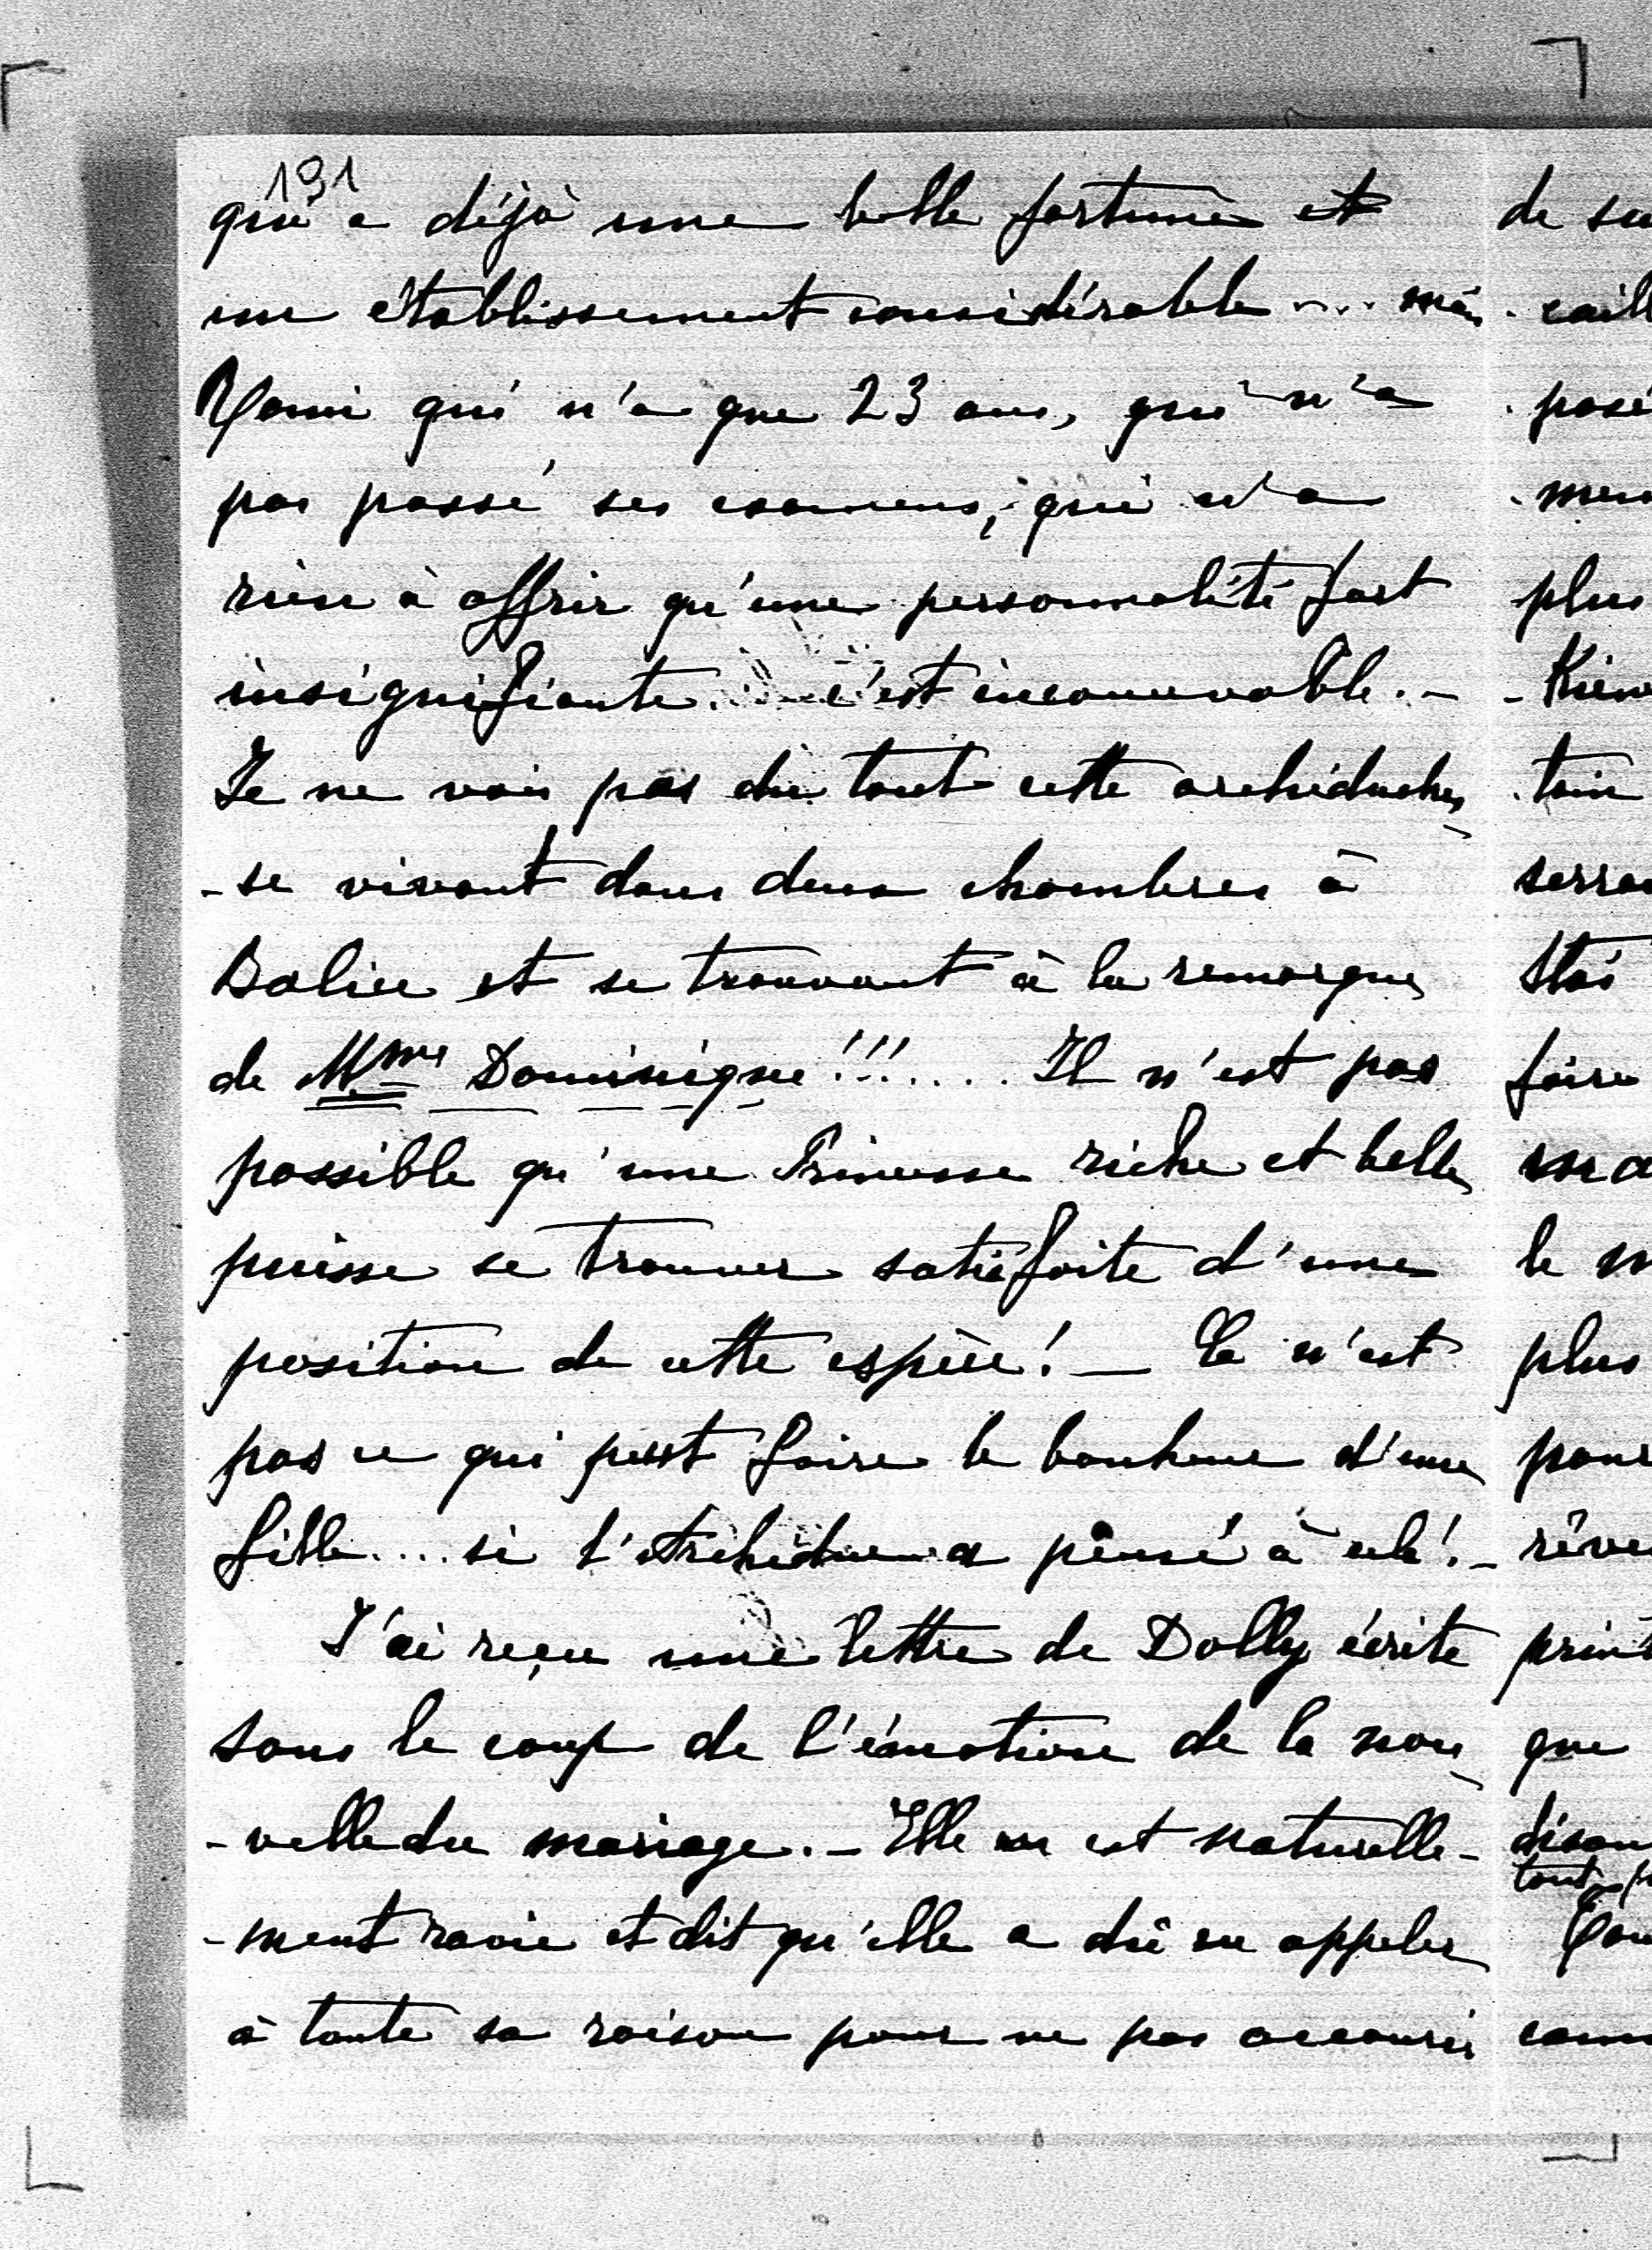 191
qui a déjà une belle fortune et
un établissement considérable .... mais
qui n'a que 23 ans, qui n'a
pas passé ses examens, qui n'a
rien à offrir qu'une personnalité fort
insignifiante ..... c'est inconcevable. -
Je ne vois pas du tout cette archiduches
-se vivant dans deux chambres à
Balice et se trouvant à la remorque
de Mme Dominique!!!..... Il n'est pas
possible qu'une Princesse riche et belle
puisse se trouver satisfaite d'une
position de cette espèce! - Ce n'est
pas ce qui peut faire le bonheur d'une
fille.... si l'Archiduc a pensé à cela! -
J'ai reçu une lettre de Dolly écrite
sous le coup de l'émotion de la nou
-velle du mariage. - Elle en est naturelle-
-ment ravie et dit qu'elle a dû en appeler
à toute sa raison pour ne pas accourir
de
plus
faire
le
plus
que
tout